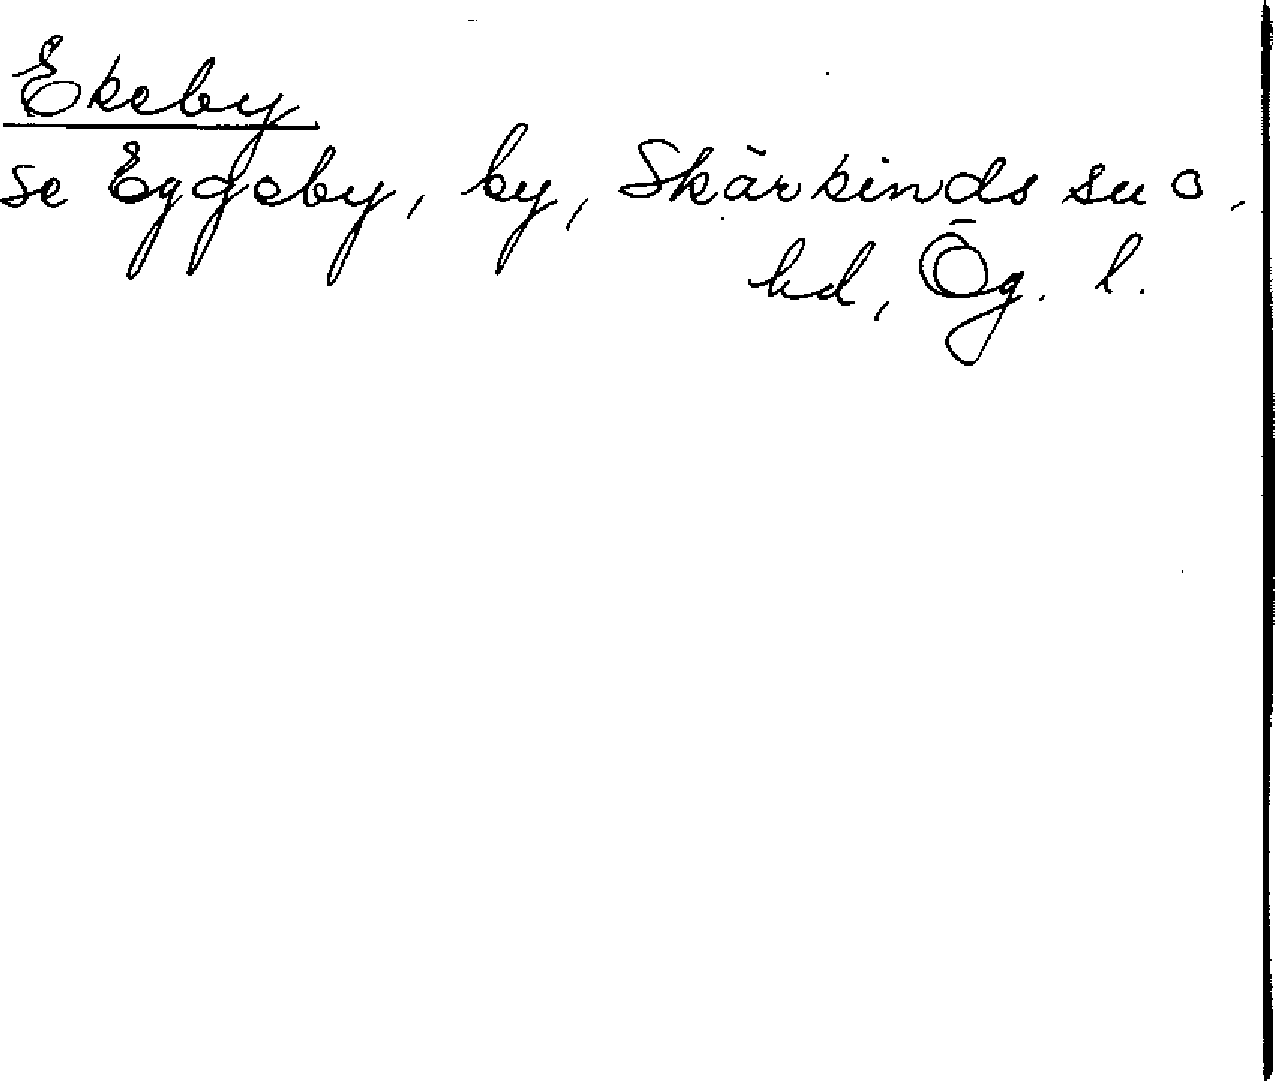 Ekeby
se Eggeby, by, Skärkinds sn o.
hd, Ög. l.